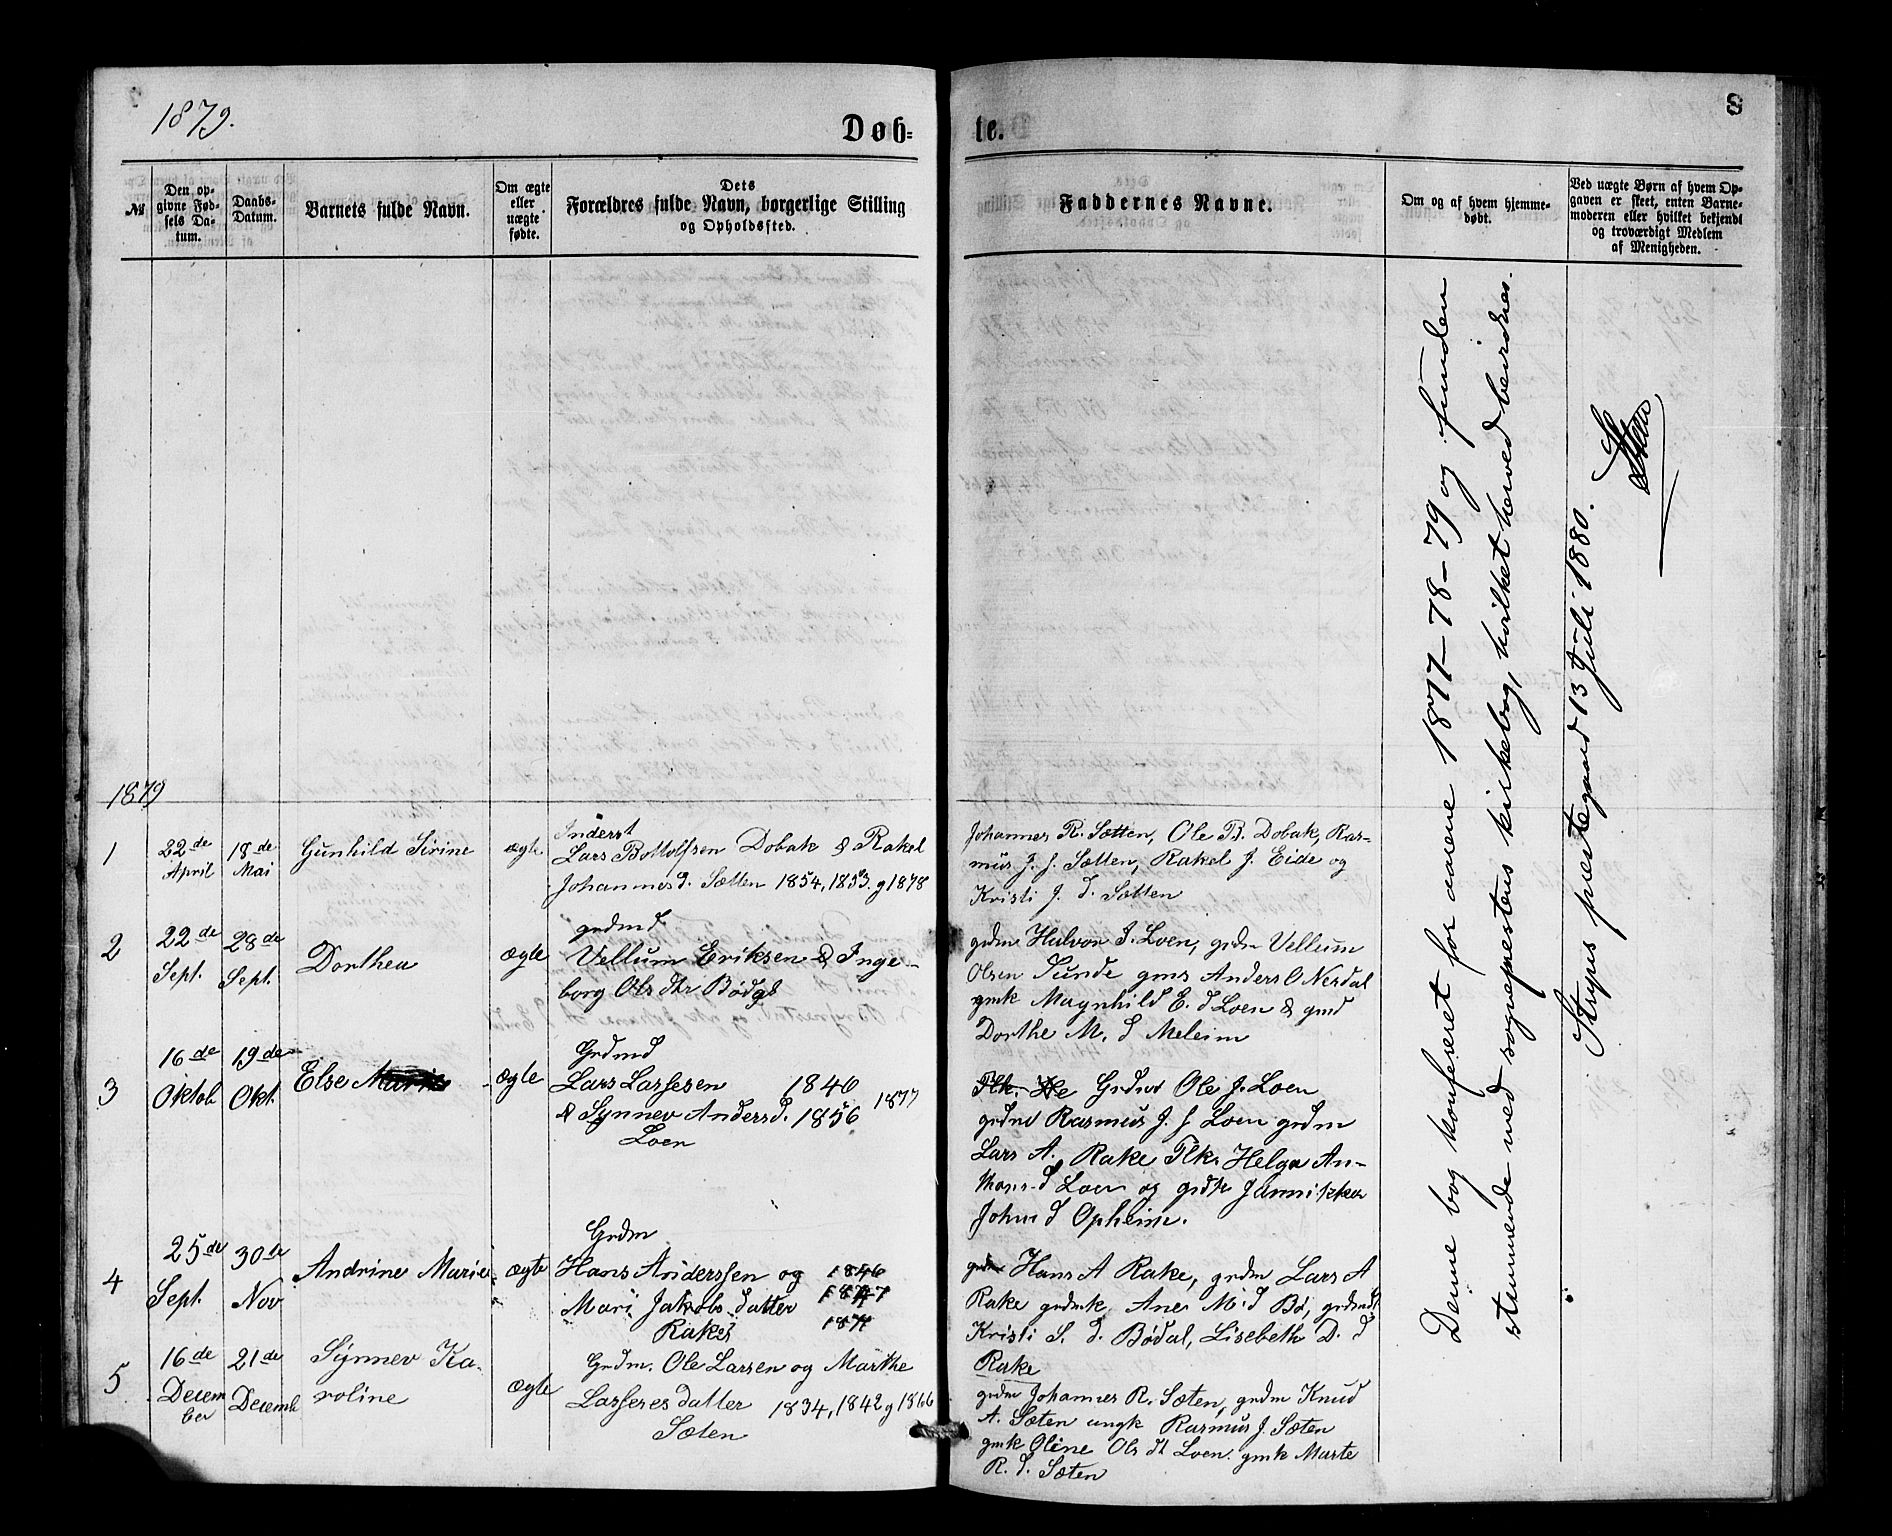 1879.
Døb-
te.
8
№
Den op-
givne Fød-
sels Da-
tum.
Daabs-
Datum.
Barnets fulde Navn.
Om ægte
eller
uægte
fødte.
Dets
Forældres fulde Navn, borgerlige Stilling
og Opholdssted.
Faddernes Navne.
Om og af hvem hjemme-
døbt.
Ved uægte Børn af hvem Op-
gaven er skeet, enten Barne-
moderen eller hvilket bekjendt
og troværdigt Medlem
af Menigheden.
1879
1
22de
April
18de
Mai
Gunhild Sirine
ægte
Inderst
Lars Bottolfsen Dobak & Rakel
Johannesd. Sætten 1854, 1853. g 1878
Johannes R. Sætten, Ole B. Dobak, Ras-
mus J. J. Sætten, Rakel J. Eide og
Kristi J. d. Sætten
2
22de
Sept.
28de
Sept.
Dorthea
ægte
grdmd
Vellum Eriksen & Inge-
borg Ols dtr Bødal
grdm Halvor J. Loen, grdm Vellum
Olsen Sunde gms Anders O Nesdal
gmk Magnhild E. d Loen & gmd
Dorthe M. d Meleim
3
16de
Oktob.
19de
Okt.
Else Marie
ægte
Grdmd
Lars Larsesen 1846
& Synnev Andersd. 1856 1877
Loen
Plk. Ole Grdmd Ole J. Loen
grdmd Rasmus J. J Loen grdm
Lars A. Rake Plk. Helga An-
thons d Loen og grdk Jannikken
Johns d Opheim.
4
25de
Sept.
30te
Nov
Andrine Marie
ægte
Grdm
Hans Anderssen og 1846
Mari Jakobs datter 1847
Rake 1871
grdm Hans A Rake, grdm Lars A
Rake grdmk. Ane M. d Bø, grdmdt
Kristi S. d. Bødal, Lisebeth D. d
Rake
5
16de
Decem
ber
21de
Decemb
Synnev Ka-
roline
ægte
Grdm. Ole Larsen og Marthe
Larseres datter 1834, 1842 g 1866
Sæten
grdm Johannes R. Sæten, grdm Knud
A. Sæten ungk Rasmus J. Sæten
gmk Oline Ols dt Loen. gmk Marte
R. d. Sæten
Denne bog konfereret for aarene 1877-78-79 og funden
stemmende med sogneprestens kirkebog, hvilket herved bevidnes.
Stryns prestegaard 13 Juli 1880.